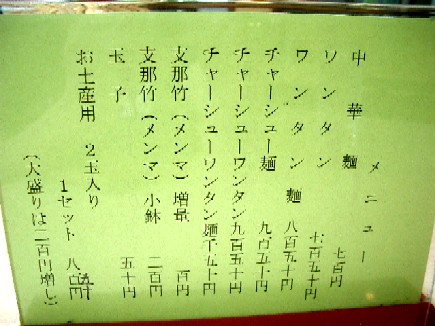 メニュー
中華麺 七百円
ワンタン 七百五十円
ワンタン麺 八百五十円
チャーシュー麺 九百五十円
チャーシューワンタン 九百五十円
チャーシューワンタン麺 千五十円
支那竹(メンマ)増量 百円
支那竹(メンマ)小鉢 二百円
玉子 五十円
お土産用 2玉入り
1セット 八百五十円
(大盛りは二百円増し)